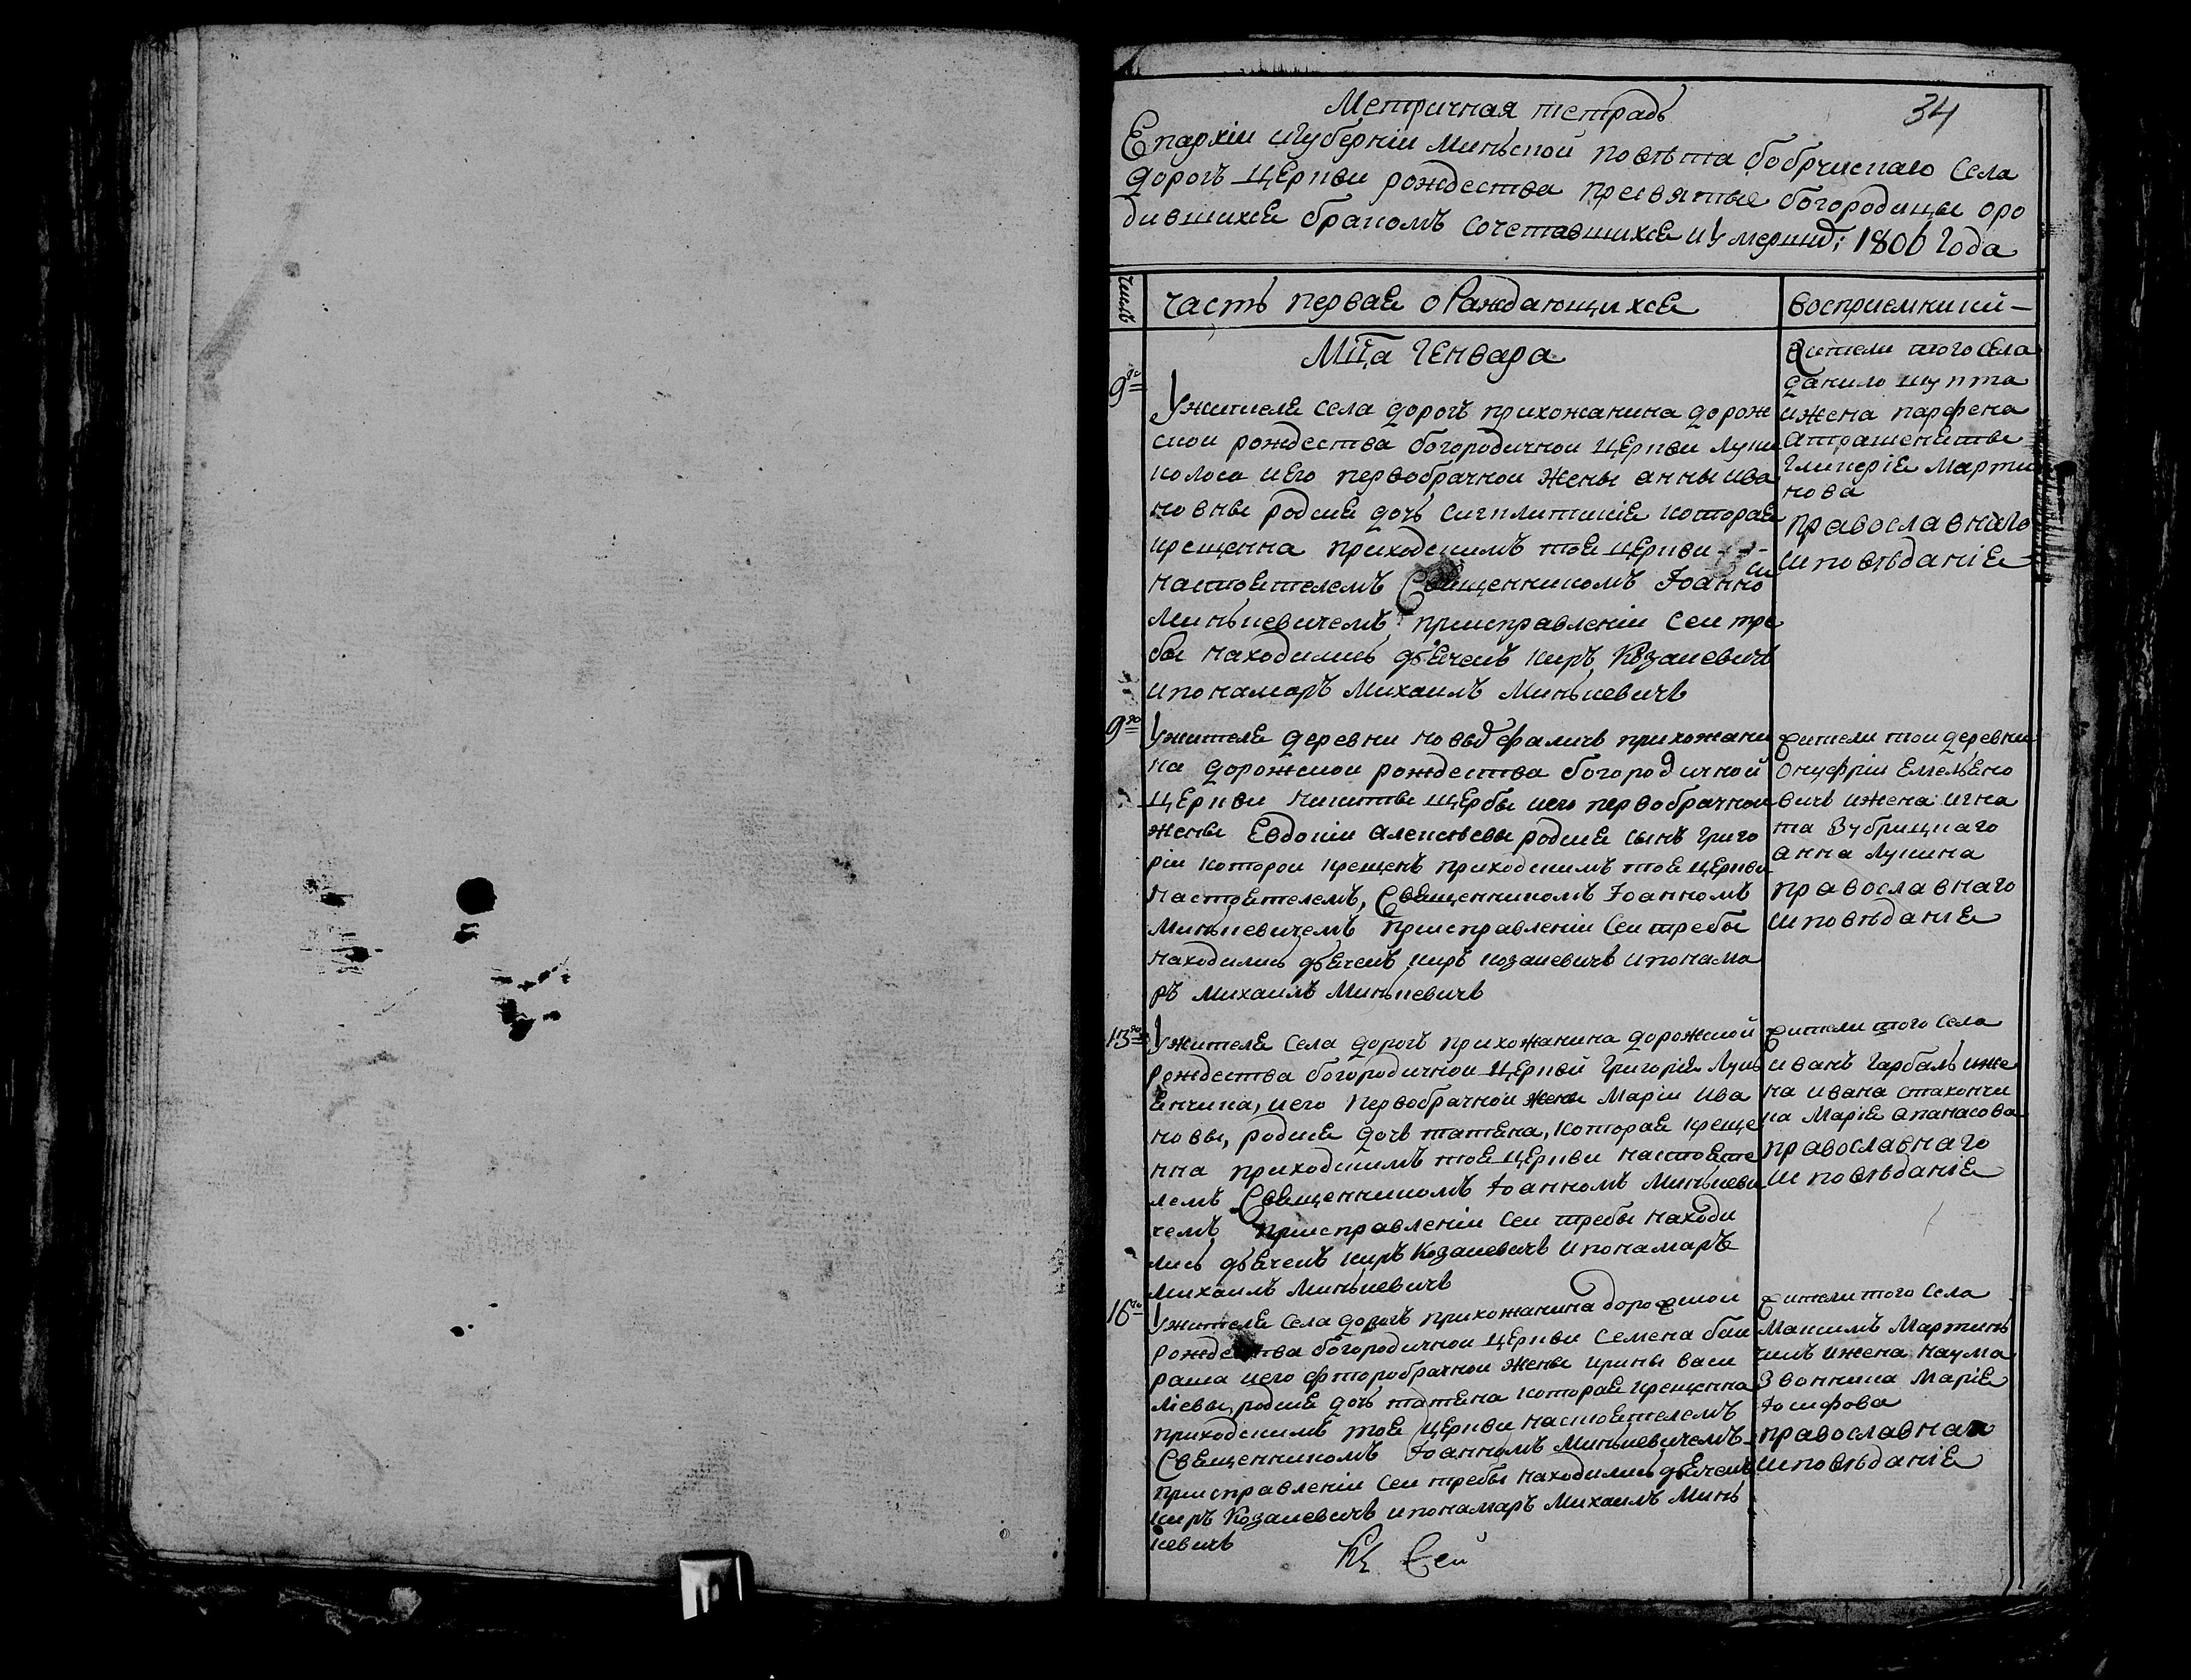 Метричная тетрадь
34
Епархіи игуберніи Минъской повѣта бобруискаго Села
дорогъ церкви рождества пресвятые богородицы оро
дившихся бракомъ сочетавшихся иумерших: 1806 Года
Числъ
Часть первая о Раждающихся
восприемникий
Мца Генвара
9го
Ужителя села дорогъ прихожанина дорож
скои рождества богородичнои церкви Луки
колоса иего первобрачнои жены анны ива
новны родися дочь Сигклитикія которая
крещенна приходскимъ тоя церкви
настоятелемъ Священникомъ Іоанно
Минъкевичемъ приисправленіи Сеи тре
бы находились дьячекъ киръ Козакевичъ
ипонамаръ Михаилъ Минъкевичъ
жители того села
данило шупта
ижена парфена
Гликерія Марти
нова
православнаго
исповѣданія
9го
Ужителя деревни новыд фаличъ прихожани
на дорожскои рождества богородичной
церкви никиты щербы иего первобрачнои
жены Евдокіи алексѣевы родися сынъ Григо
ріи которои крещенъ приходскимъ тоя церкви
Настоятелемъ, Священникомъ Іоанномъ
Минъкевичемъ приисправленіи Сеи требы
находились дьячекъ киръ козакевичъ ипонама
ръ Михаилъ Минъкевичъ
жители тои деревни
Онуфріи Емельяно
вичъ ижена игна
та Зубрицкаго
анна Лукина
православнаго
исповѣданія
13го
Ужителя Села дорогъ прихожанина дорожской
рождества богородичнои церквй Григорія Лукь
янчика, иего Первобрачнои жены Маріи ива
новы, родися дочъ татяна, которая креще
нна приходскимъ тоя церкви настояте
лемъ Священникомъ Іоанномъ Минъкеви
чемъ приисправленіи Сеи требы находи
лись дьячекъ киръ Козакевичъ ипонамаръ
Михаилъ Минъкевичъ
жители того Села
иванъ Гарбаль иже
на ивана стахончи
ка Марія апанасова
православнаго
исповѣданія
16го
Ужителя Села дорогъ прихожанина дорожской
рождества богородичнои церкви Семена баи
раша иего фторобрачнои жены ирины васи
ліевы, родися дочь татяна которая крещенна
приходскимъ тоя церкви настоятелемъ
Священникомъ Іоанномъ Минъкевичемъ
приисправленіи Сеи требы находились дьячекъ
киръ Козакевичъ ипонамаръ Михаилъ Минъ
кевичъ
жители того Села
Максимъ Мартинь
чикъ ижена наума
Звонника Марія
Іосифова
православнаго
исповѣданія